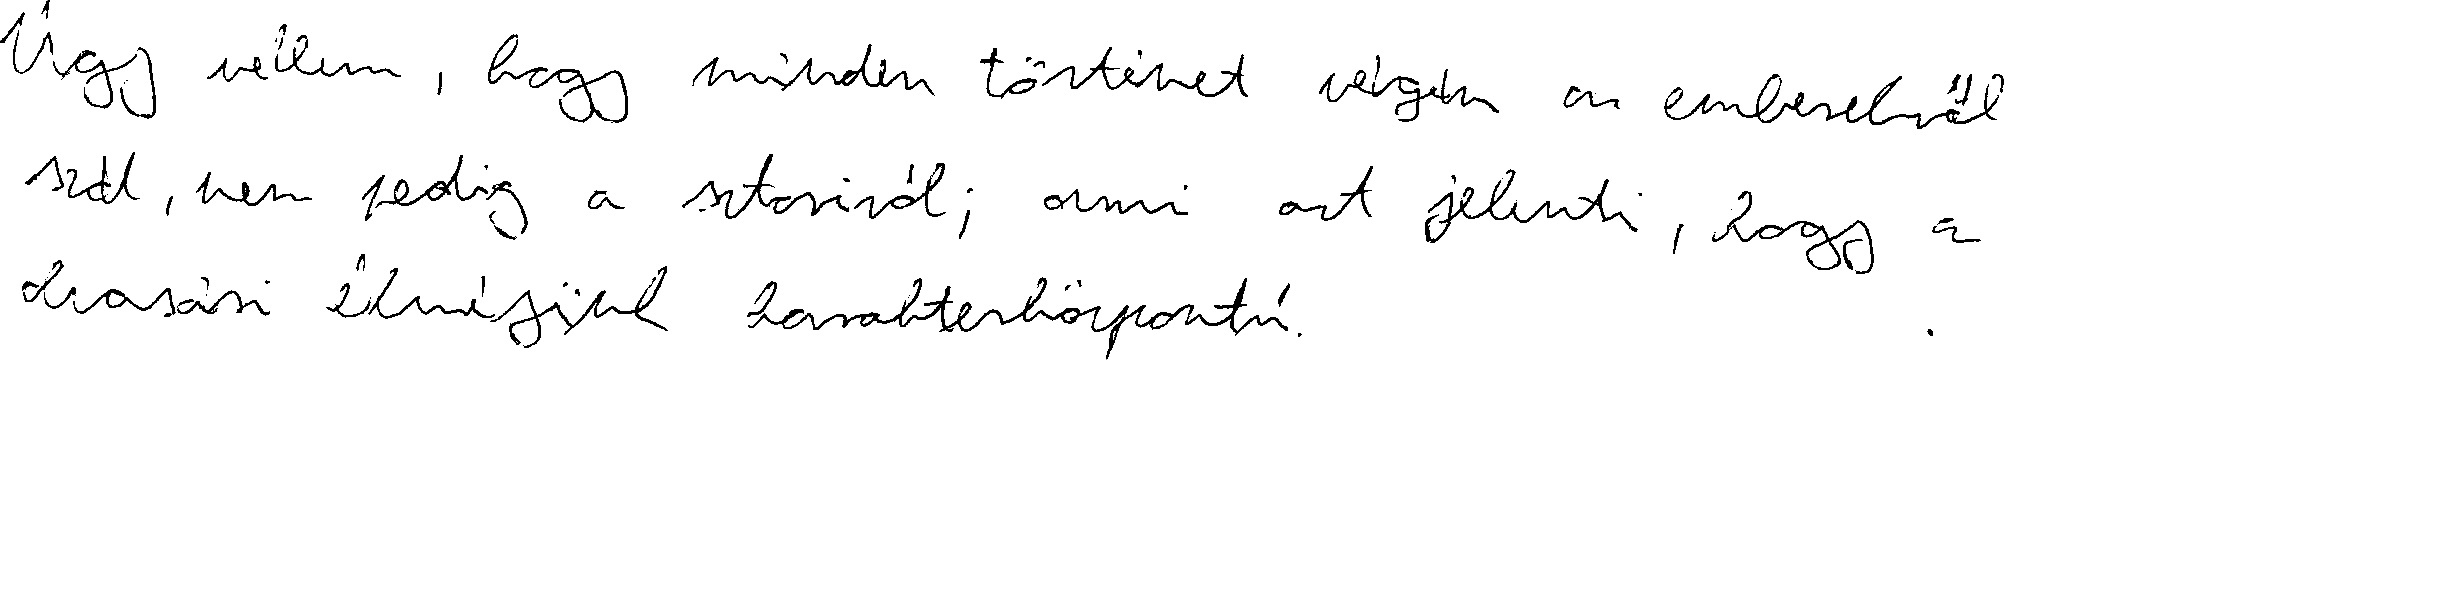 Úgy vélem, hogy minden történet végén az emberekről
szól, nem pedig a sztoriról; ami azt jelenti, hogy a
olvasási élményünk karakterközpontú.